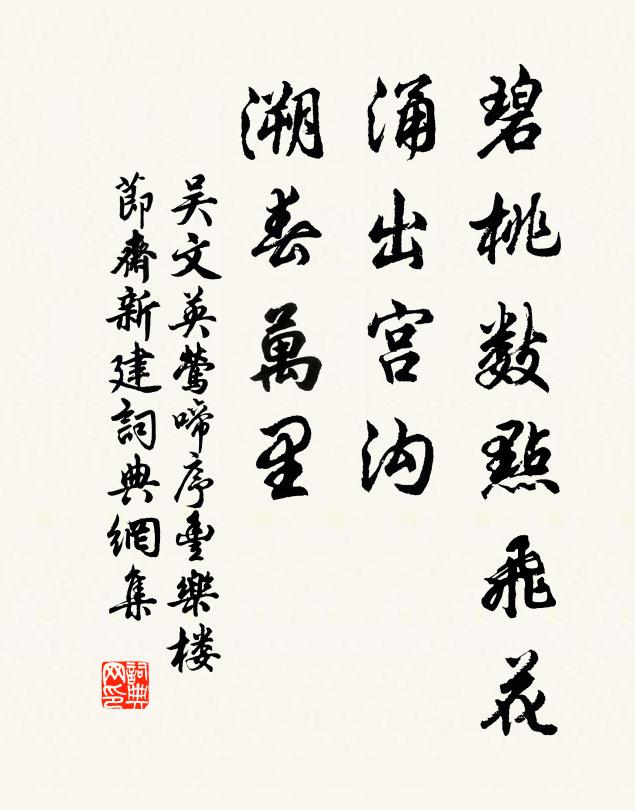 碧桃數點飛花
涌出宫沟
溯春萬里
吴文英鶯啼序豊樂楼
節齋新建詞典網集
詞典网印